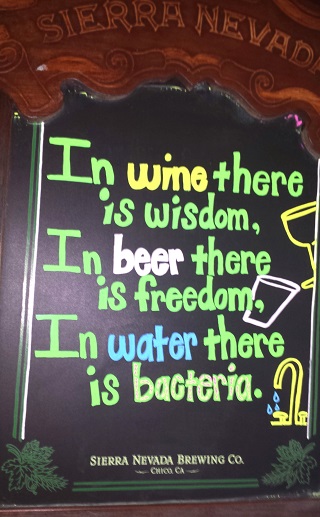 SIERRA NEVADA
In wine there
is wisdom,
In beer there
is freedom,
In water there
is bacteria.
SIERRA NEVADA BREWING CO.
CHICO, CA